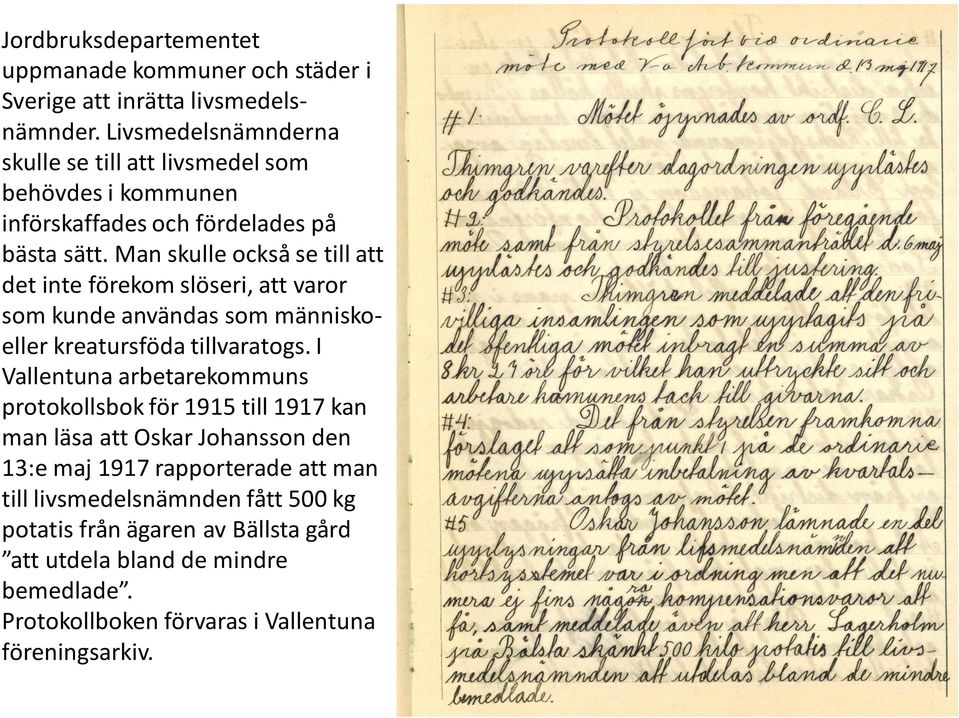 Jordbruksdepartementet
uppmanade kommuner och städer i
Sverige att inrätta livsmedels-
nämnder. Livsmedelsnämnderna
skulle se till att livsmedel som
behövdes i kommunen
införskaffades och fördelades på
bästa sätt. Man skulle också se till att
det inte förekom slöseri, att varor
som kunde användas som människo-
eller kreatursföda tillvaratogs. I
Vallentuna arbetarekommuns
protokollsbok för 1915 till 1917 kan
man läsa att Oskar Johansson den
13:e maj 1917 rapporterade att man
till livsmedelsnämnden fått 500 kg
potatis från ägaren av Bällsta gård
”att utdela bland de mindre
bemedlade”.
Protokollboken förvaras i Vallentuna
föreningsarkiv.
Protokoll fört vid ordinarie
möte med V-a Arb. kommun d. 13 maj 1917
#1: Mötet öppnades av ordf. C. L.
Thimgren varefter dagordningen upplästes
och godkändes.
#2: Protokollet från föregående
möte samt från styrelsesammanträdet d. 6 maj
upplästes och godkändes till justering.
#3: Thimgren meddelade att den fri-
villiga insamlingen som upptagits på
det ofentliga mötet inbragt en summa av
8 kr 27 öre för vilket han uttryckte sitt och
arbetare komunens tack till givarna.
#4: Det från styrelsen framkomna
förslaget att som punkt 1 på de ordinarie
mötena uppsätta inbetalning av kvartals-
avgifterna antogs av mötet.
#5 Oskar Johansson lämnade en del
upplysningar från lifsmedelsnämnden att
kortsysstemet var i ordning men att det nu-
mera ej fins några kompensationsvaror att
få, samt meddelade även att herr Lagerholm
på Bälsta skänkt 500 kilo potatis till livs-
medelsnämnden att utdelas bland de mindre
bemedlade.